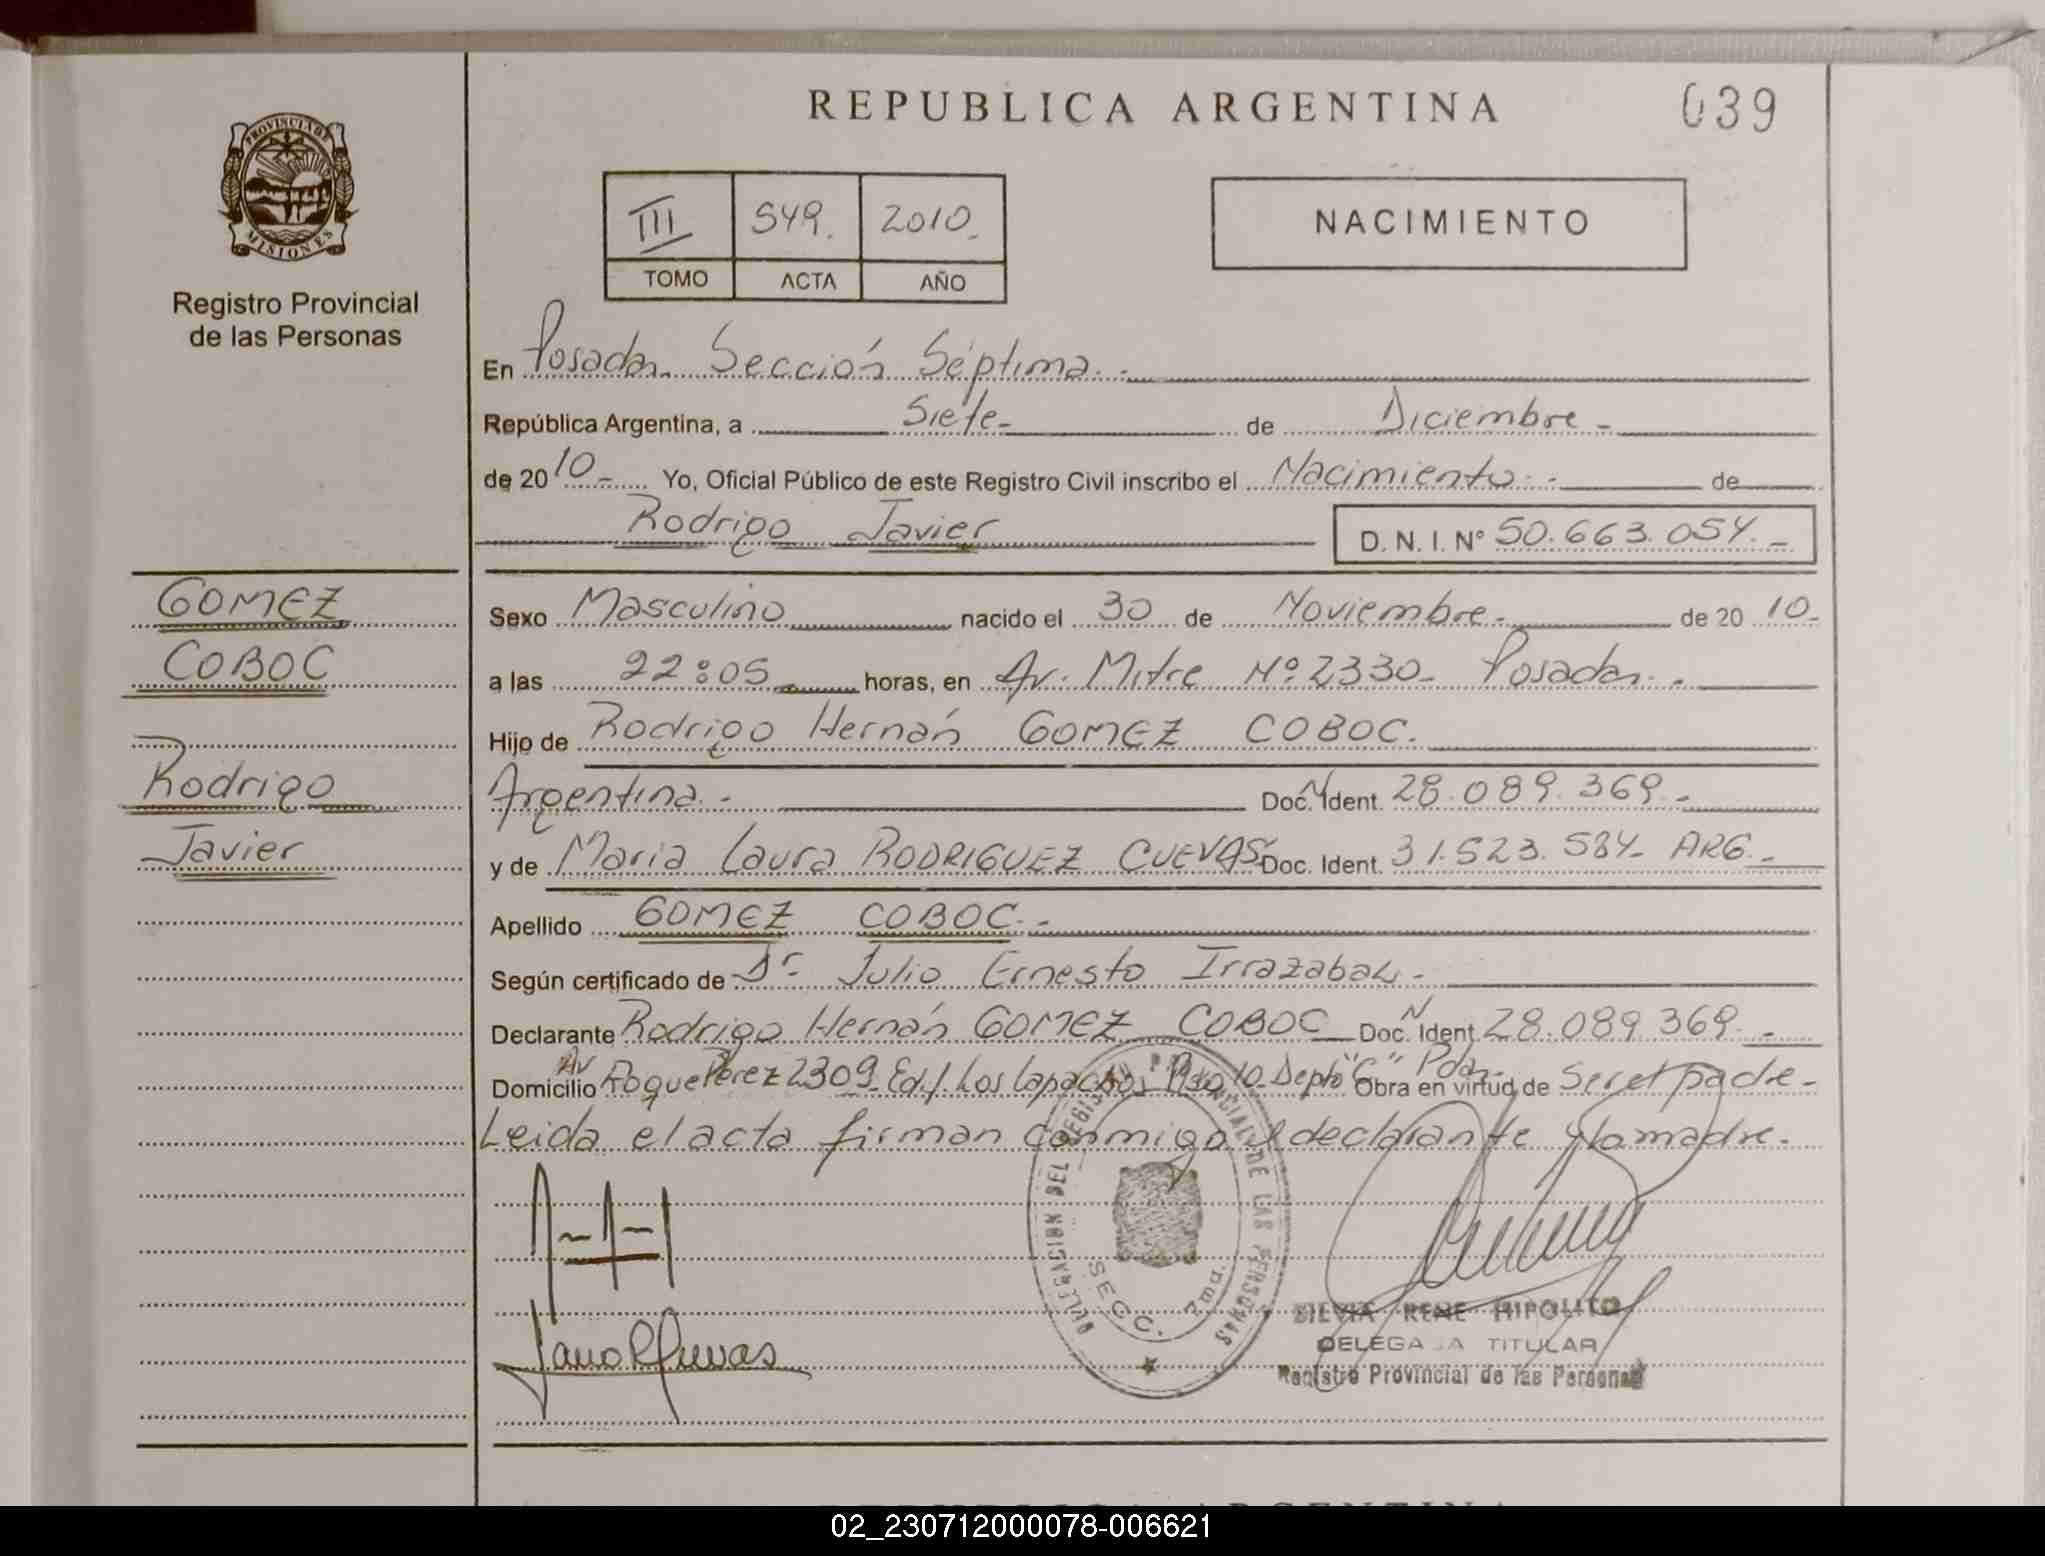 REPUBLICA ARGENTINA
039
PROVINCIA DE
MISIONES
Registro Provincial
de las Personas
III 549. 2010.
TOMO ACTA AÑO
NACIMIENTO
En Posadas. Sección Séptima.-
República Argentina, a Siete- de Diciembre-
de 2010- Yo, Oficial Público de este Registro Civil inscribo el Nacimiento.- de
Rodrigo Javier
D. N. I. N° 50.663.054.-
GOMEZ
COBOC
Rodrigo
Javier
Sexo Masculino nacido el 30 de Noviembre- de 2010-
a las 22:05 horas, en Av. Mitre Nº 2330- Posadas.-
Hijo de Rodrigo Hernán GOMEZ COBOC.
Argentina.- Doc. N Ident. 28.089.369.-
y de Maria Laura RODRIGUEZ CUEVAS Doc. Ident. 31.523.584- ARG.-
Apellido GOMEZ COBOC.-
Según certificado de Dr. Julio Ernesto Irrazabal.-
Declarante Rodrigo Hernán GOMEZ COBOC Doc. N Ident. 28.089.369.-
Domicilio Av Roque Perez 2309- Edif. Los Lapachos Piso 10- Depto "C" Pdas- Obra en virtud de Ser el padre-
Leida el acta firman conmigo el declarante y la madre.
DELEGACION DEL REGISTRO PROVINCIAL DE LAS PERSONAS
SECC. 7ma.
SILVIA RENE HIPOLITO
DELEGADA TITULAR
Registro Provincial de las Personas
02_230712000078-006621